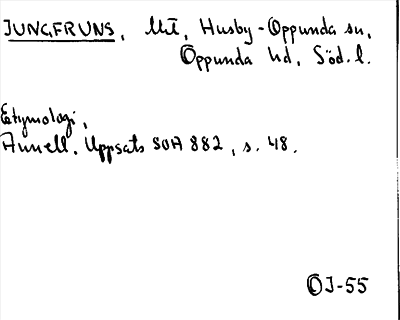 JUNGFRUNS, Mt, Husby-Oppunda sn,
Oppunda hd, Söd. l.
Etymologi,
Annell. Uppsats SOA 882, s. 48.
OJ-55